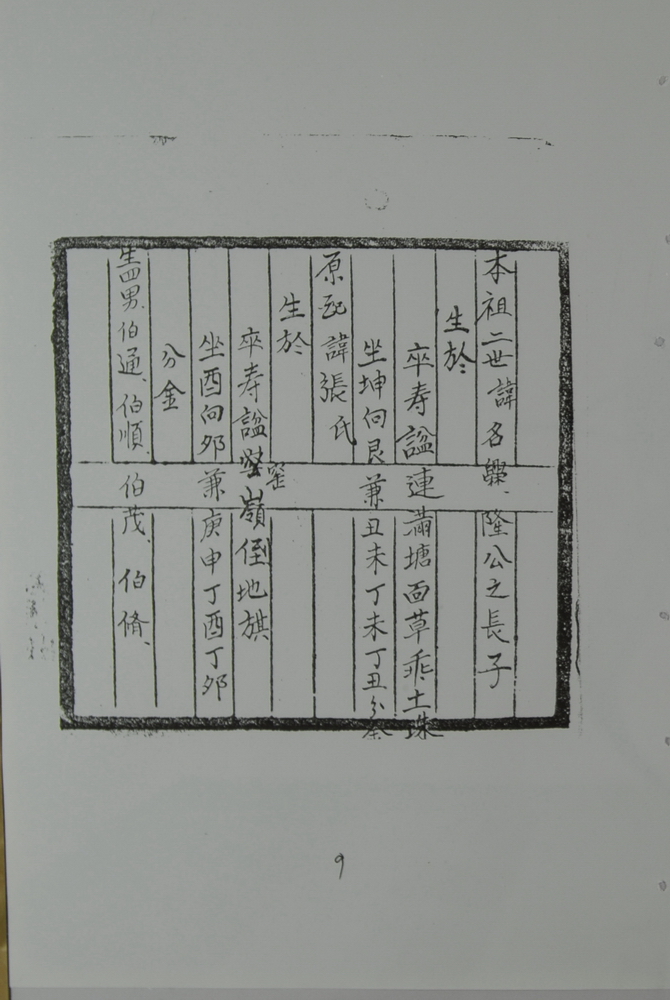 本祖二世諱名、隆公之長子
生於
卒寿諡連塘面草乖土珠
坐坤向艮兼丑未丁未丁丑分金
原配諱張氏
生於
卒寿諡嶺倒地旗
窑
坐酉向夘兼庚申丁酉丁夘
分金
生四男、伯通、伯順、伯茂、伯脩、
9